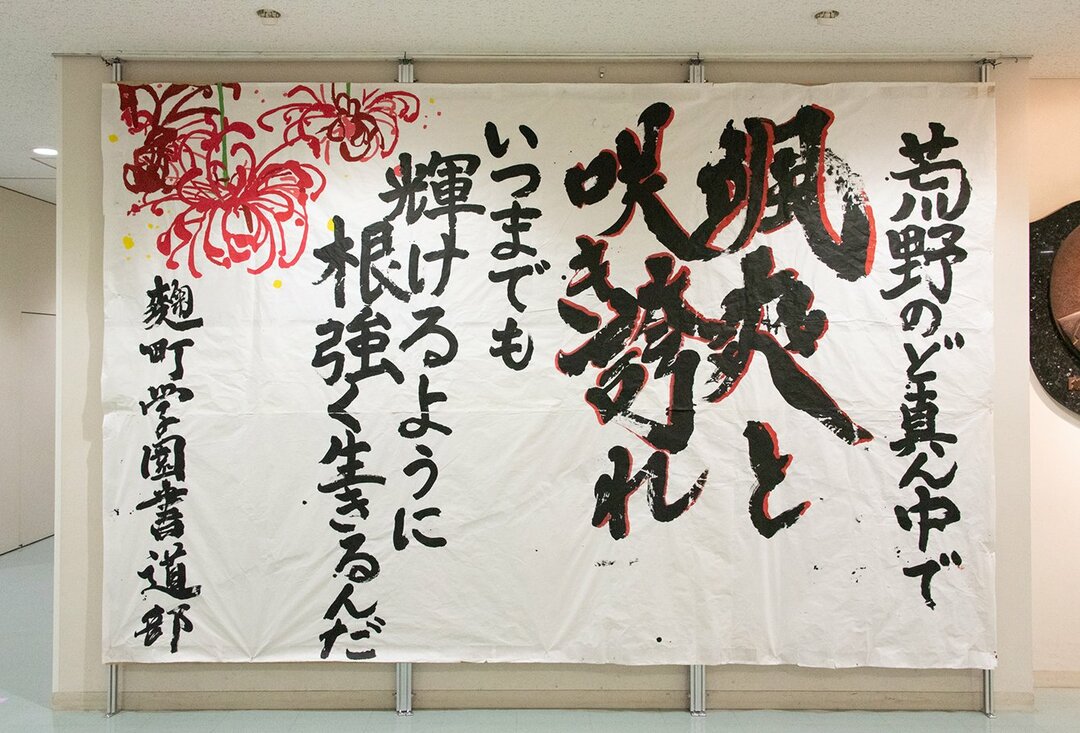 荒野のど真ん中で
颯爽と
咲き誇れ
いつまでも
輝けるように
根強く生きるんだ
麹町学園書道部